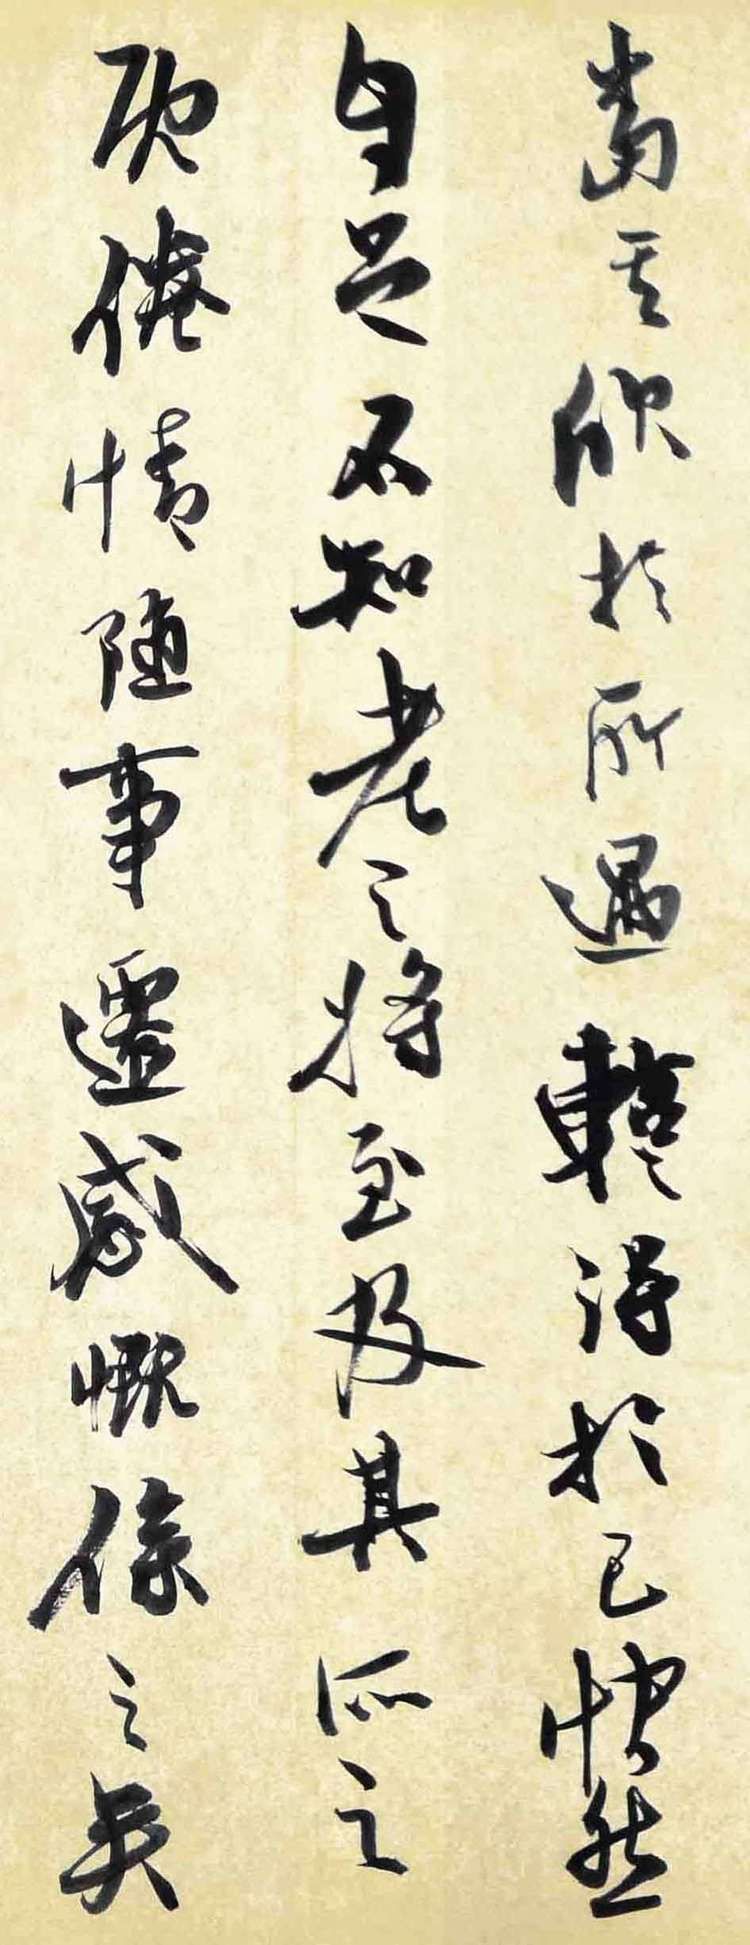 當其欣於所遇暫得於己快然
自足不知老之將至及其所之
既倦情隨事遷感慨係之矣